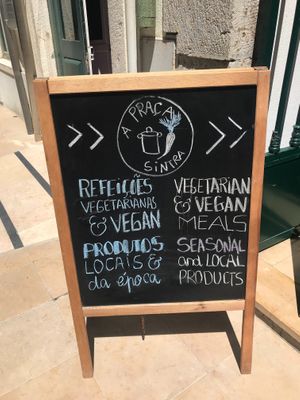 A PRAÇA
SINTRA
>> >>
REFEIÇÕES
VEGETARIANAS
& VEGAN
PRODUTOS
LOCAIS &
da época
VEGETARIAN
& VEGAN
MEALS
SEASONAL
and LOCAL
PRODUCTS